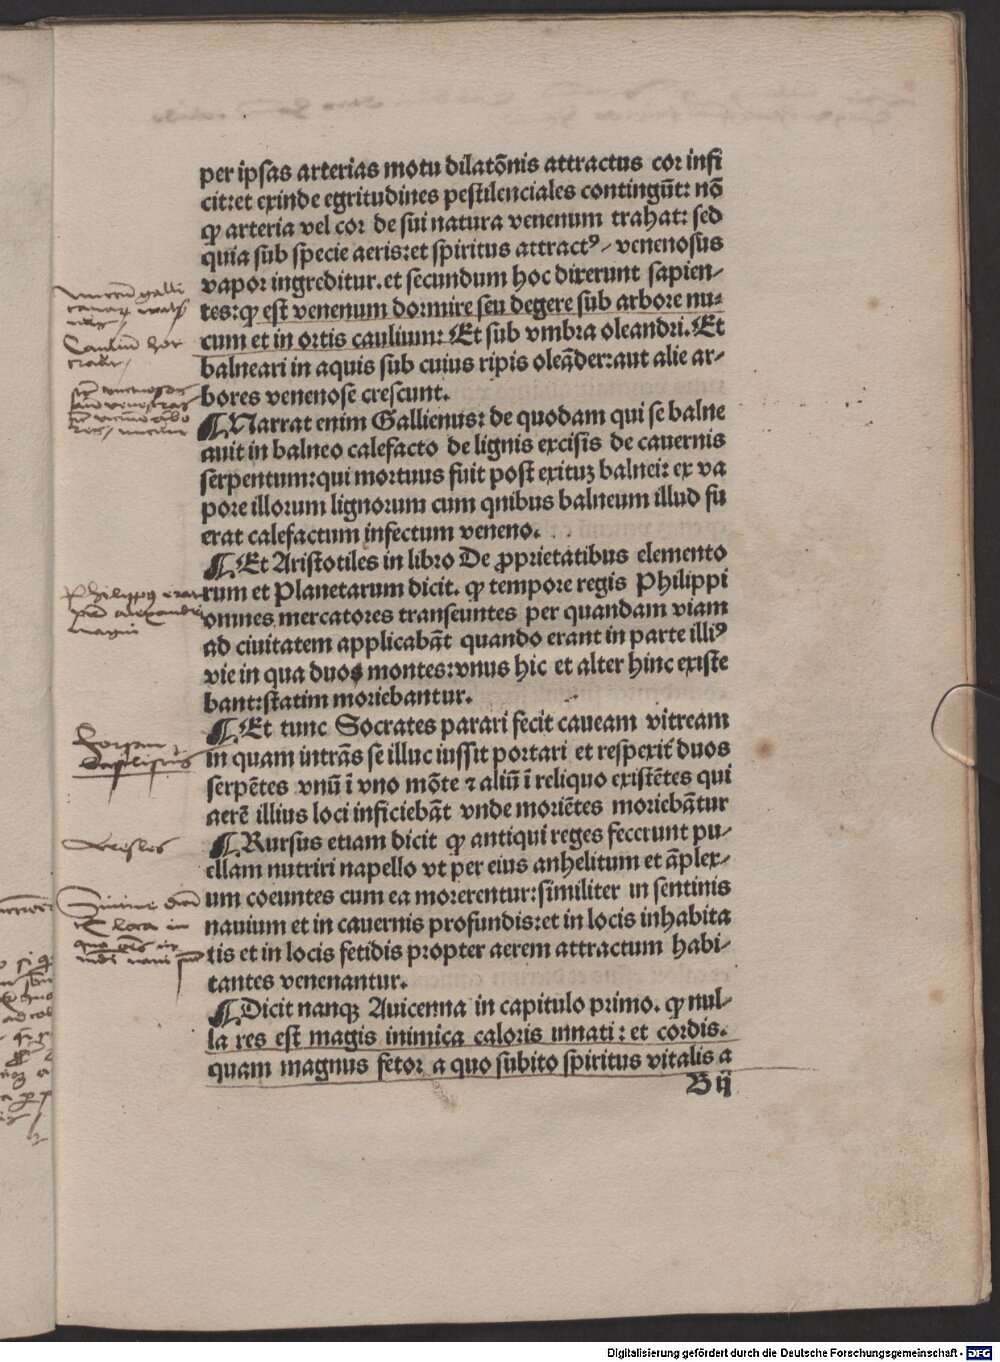 per ipsas arterias motu dilatõnis attractus cor infi
cit:et exinde egritudines pestilenciales contingũt: nõ
ꝙ arteria vel cor de sui natura venenum trahat: sed
quia sub specie aeris:et spiritus attractꝰ / venenosus
vapor ingreditur.et secundum hoc dixerunt sapien/
tes:ꝙ est venenum dormire seu degere sub arbore nu/
cum et in ortis caulium: Et sub vmbra oleandri.Et
balneari in aquis sub cuius ripis oleãder:aut alie ar/
bores venenose crescunt.
¶Narrat enim Gallienus: de quodam qui se balne
auit in balneo calefacto de lignis excisis de cauernis
serpentum:qui mortuus fuit post exituꝫ balnei: ex va
pore illorum lignorum cum qnibus balneum illud fu
erat calefactum infectum veneno.
¶Et Aristotiles in libro De ꝓprietatibus elemento
rum et Planetarum dicit. ꝙ tempore regis Philippi
omnes mercatores transeuntes per quandam viam
ad ciuitatem applicabãt quando erant in parte illiꝰ
vie in qua duos montes:vnus hic et alter hinc existe
bant:statim moriebantur.
¶Et tunc Socrates parari fecit caueam vitream
in quam intrãs se illuc iussit portari et respexit duos
serpẽtes vnũ ĩ vno mõte ⁊ aliũ ĩ reliquo existẽtes qui
aerẽ illius loci inficiebãt vnde moriẽtes moriebãtur
¶Rursus etiam dicit ꝙ antiqui reges fecerunt pu/
ellam nutriri napello vt per eius anhelitum et ãplex/
um coeuntes cum ea morerentur:similiter in sentinis
nauium et in cauernis profundis:et in locis inhabita
tis et in locis fetidis propter aerem attractum habi/
tantes venenantur.
¶Dicit nanqꝫ Auicenna in capitulo primo. ꝙ nul/
la res est magis inimica caloris innati: et cordis.
quam magnus fetor a quo subito spiritus vitalis a
Bij
Philippus
magni
Digitalisierung gefördert durch die Deutsche Forschungsgemeinschaft - DFG